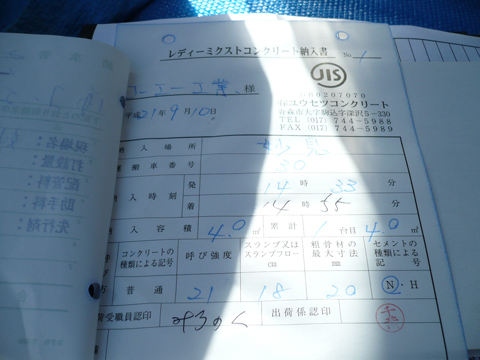 レディーミクストコンクリート納入書
No. 1
JIS
エー工業 様
平成21年9月10日
㈲ユウセツコンクリート
青森市大字駒込字深沢5-330
TEL (017) 744-5988
FAX (017) 744-5989
納入場所 妙見
運搬車番号 30
納入時刻 発 14時33分
着 14時55分
納入容積 4.0㎥ 累計 1台目 4.0㎥
コンクリートの種類による記号 呼び強度 スランプ又はスランプフロー cm 粗骨材の最大寸法 mm セメントの種類による記号
普通 21 18 20 N・H
荷受職員認印 みちのく 出荷係認印
現場名:
打設量:
配管料:
助手料:
先行剤: